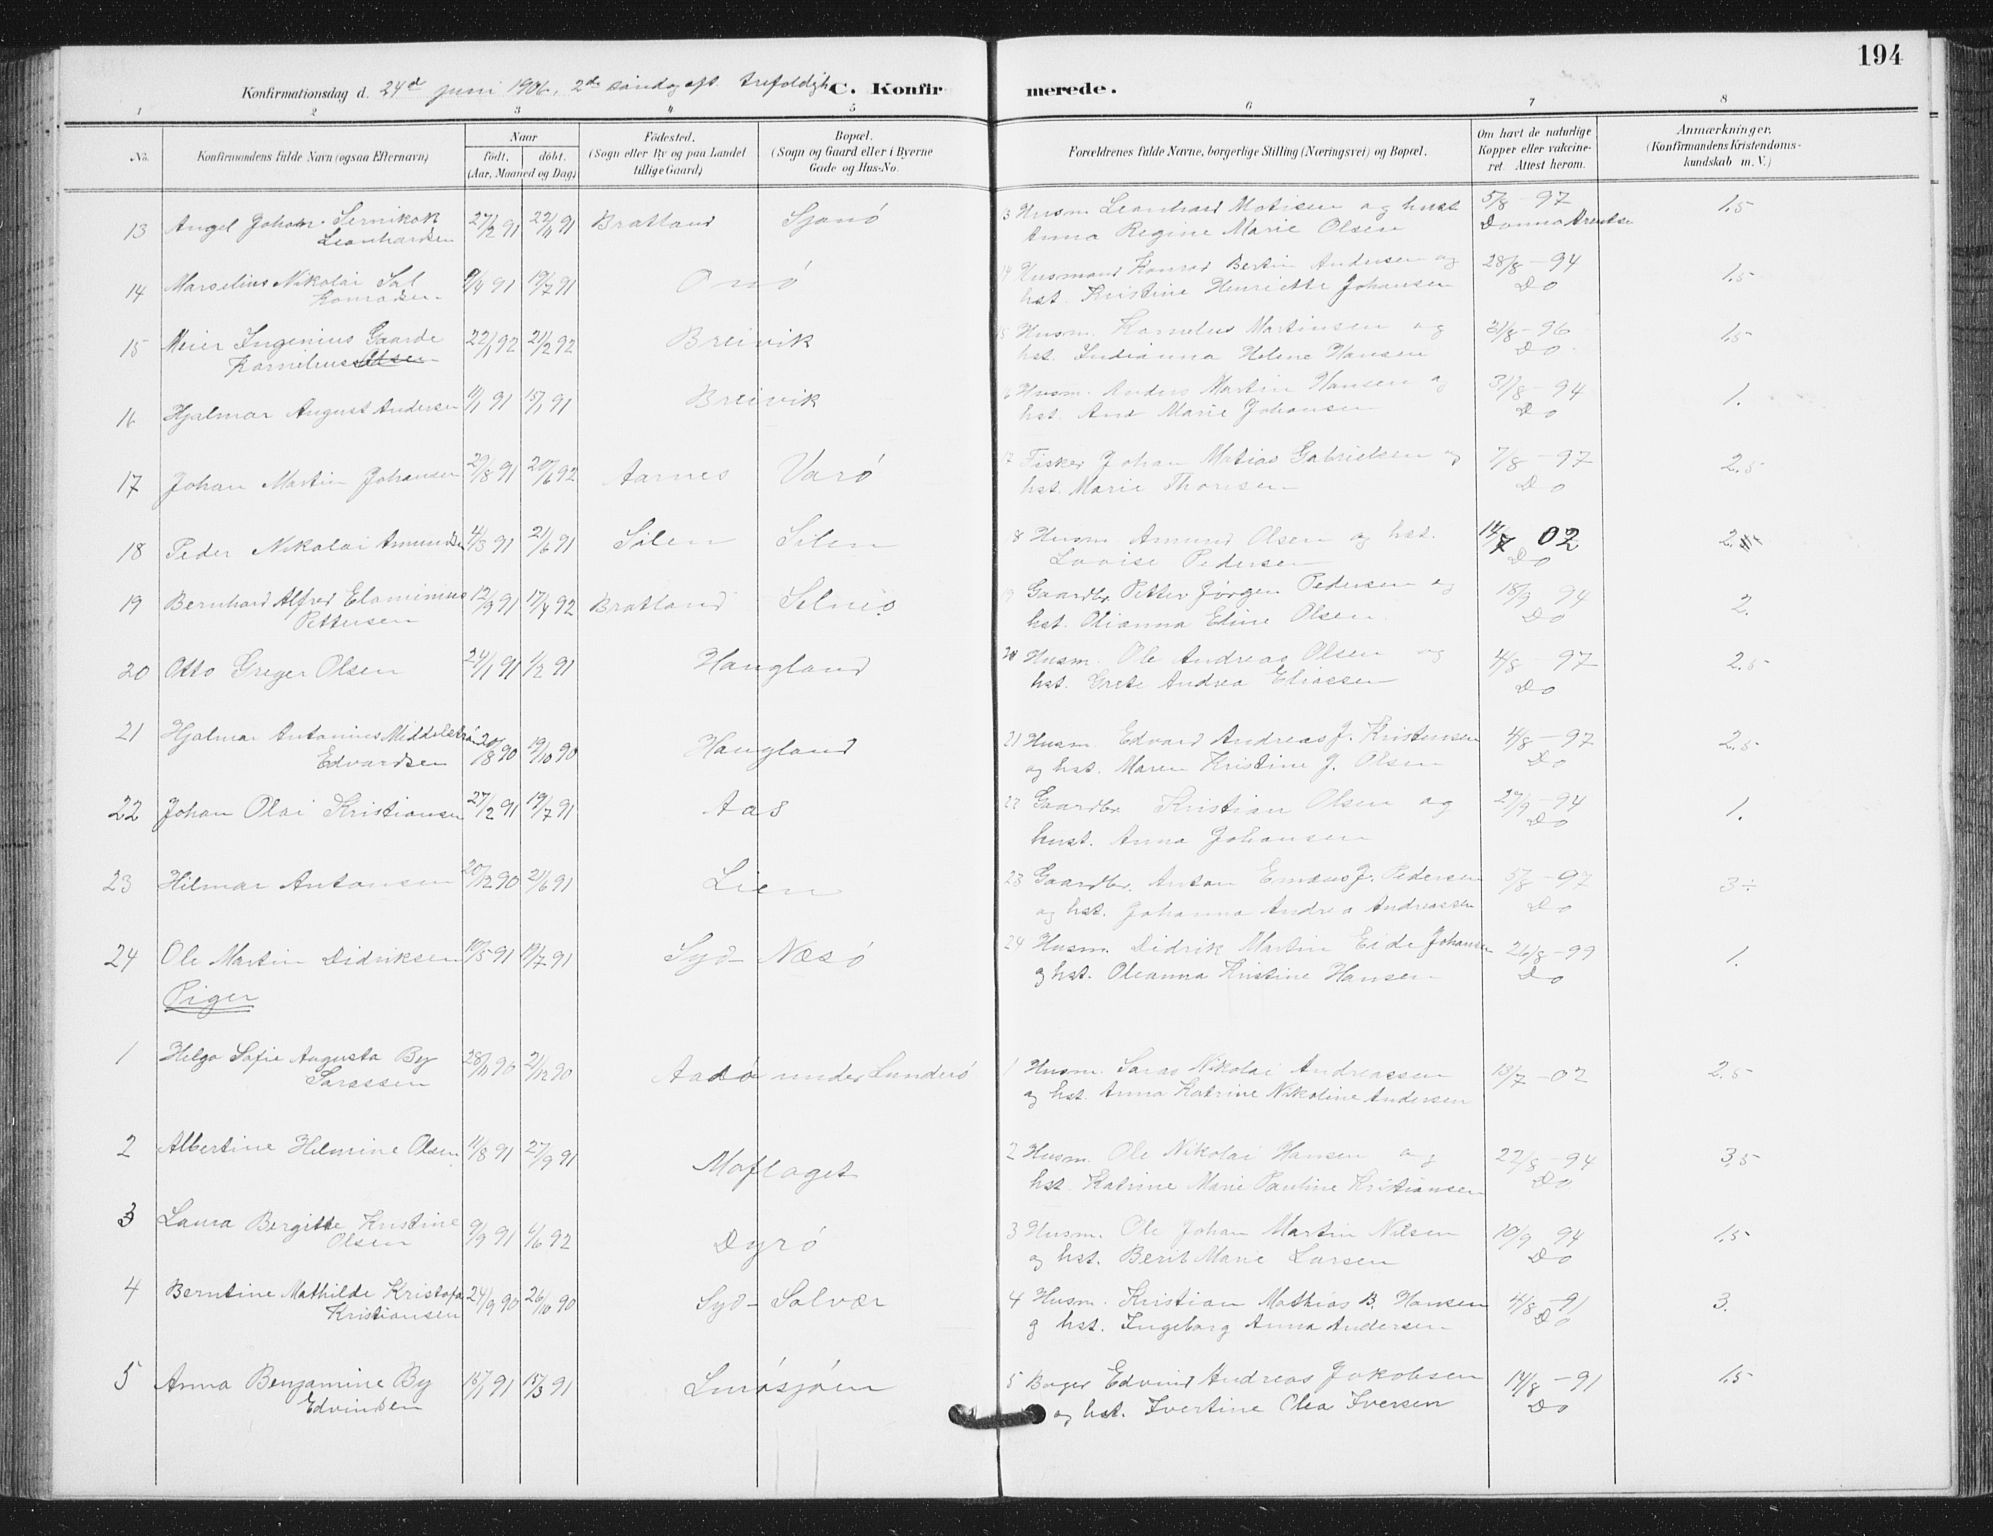 194
Konfirmationsdag d. 24de juni 1906, 2de søndag eft. trefoldigh. C. Konfirmerede.
1 2 3 4 5 6 7 8
No. Konfirmandens fulde Navn (ogsaa Efternavn) Naar født. døbt. (Aar, Maaned og Dag) Fødested. (Sogn eller By og paa Landet tillige Gaard) Bopæl. (Sogn og Gaard eller i Byerne Gade og Hus-No. Forældrenes fulde Navne, borgerlige Stilling (Næringsvei) og Bopæl. Om havt de naturlige Kopper eller vaccineret. Attest herom. Anmærkninger. (Konfirmandens Kristendomskundskab m. V.)
13 Angel Johan 27/2 91 22/11 91 Bratland Sjonö 3 Husm. Leonhard Motisen og hust 5/8 - 97 1.5
Leonhardsen Anna Regine Marie Olsen Donna
14 Marselius Nikolai Sal 9/4 91 19/7 91 Onö 14 Husmand Konrad Bertin Andersen og 28/8 - 94 1.5
Konradsen hst. Kristine Henriette Johansen Do
15 Meier Ingenius Gaarde 22/1 92 21/2 92 Breivik 15 Husm. Kornelius Martinsen og 31/8 - 96 1.5
Kornelius hst. Indianna Helene Hansen Do
16 Hjalmar August Andersen 11/1 91 15/1 91 Breivik 6 Husm. Anders Martin Hansen og 31/8 - 94 1.
hst. Ane Marie Johansen Do
17 Johan Martin Johansen 29/8 91 20/6 92 Aarnes Varö 17 Fisker Johan Matias Gabrielsen og 7/8 - 97 2.5
hst. Marie Thoresen Do
18 Peder Nikolai Amundsen 4/3 91 21/6 91 Silen Silen 8 Husm Amund Olsen og hst. 14/7 02 2.
Lovise Pedersen Do
19 Bernhard Alfred Elaminius 12/9 91 17/4 92 Bratland Selnis 19 Gaardbr. Petter Jørgen Pedersen og 18/9 94 2.
Pettersen hst. Olianna Eline Olsen Do
20 Otto Greger Olsen 24/1 91 1/2 91 Haugland 20 Husm. Ole Andreas Olsen og 4/8 - 97 2.5
hst. Grete Andrea Eliassen Do
21 Hjalmar Antonius 20/8 90 19/10 90 Haugland 21 Husm. Edvard Andreas J. Kristensen 4/8 - 97 2.5
Edvardsen og hst. Maren Kristine J. Olsen Do
22 Johan Olai Kristiansen 27/2 91 19/7 91 Aas 22 Gaardbr Kristian Olsen og 27/9 - 94 1.
hust. Anna Johansen Do
23 Hilmar Antonsen 20/12 90 21/6 91 Lien 23 Gaardbr. Anton Emaus J. Pedersen 5/8 - 97 3 ÷
og hst. Johanna Andrea Andreassen Do
24 Ole Martin Didriksen 10/5 91 19/7 91 Syd-Næsö 24 Husm. Didrik Martin Eide Johansen 26/8 - 99 1.
og hst. Oleanna Kristine Hansen Do
Piger
1 Helga Sofie Augusta By 28/11 90 21/12 90 Aadö under Lunderö 1 Husm. Saras Nikolai Andreassen 13/7 - 02 2.5
Sarassen og hst. Anna Katrine Nikoline Andersen
2 Albertine Helmine Olsen 11/8 91 27/9 91 Moflaget 2 Husm. Ole Nikolai Hansen og 22/8 - 94 3.5
hst. Katrine Marie Pauline Kristiansen Do
3 Laura Bergitte Kristine 9/9 91 6/6 92 Dyrö 3 Husm. Ole Johan Martin Nilsen 10/9 94 1.5
Olsen og hst. Berit Marie Larsen Do
4 Berntine Mathilde Kristofa 24/9 90 26/10 90 Syd-Solvær 4 Husm. Kristian Mathias B. Hansen 4/8 - 91 3.
Kristiansen og hst. Ingeborg Anna Andersen Do
5 Anna Benjamine By 15/1 91 15/3 91 Smösjöen 5 Boger Edvind Andreas Jakobsen 14/8 - 91 1.5
Edvindsen og hst. Ivertine Olea Iversen Do